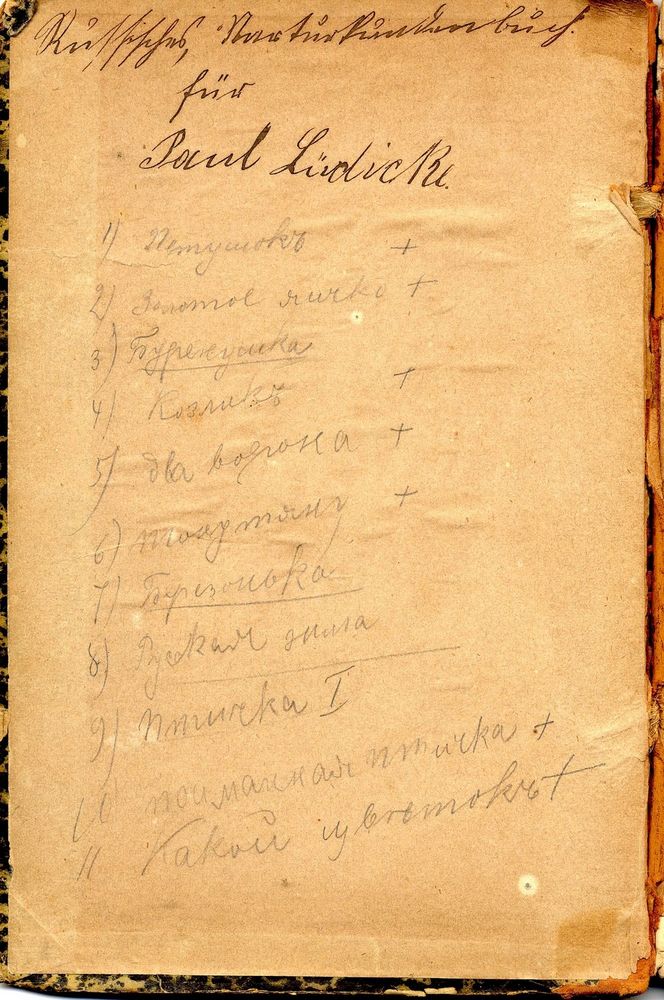 Russisches, Narturkundenbuch.
für
Paul Lüdicke.
1) Петушокъ +
2) Золотое яичко +
3) Буренушка
4) Козликъ +
5) два ворона +
6)
7) Березонька
8) Русская зима
9) Птичка I
10 пойманная птичка +
11 Какой цвѣтокъ +